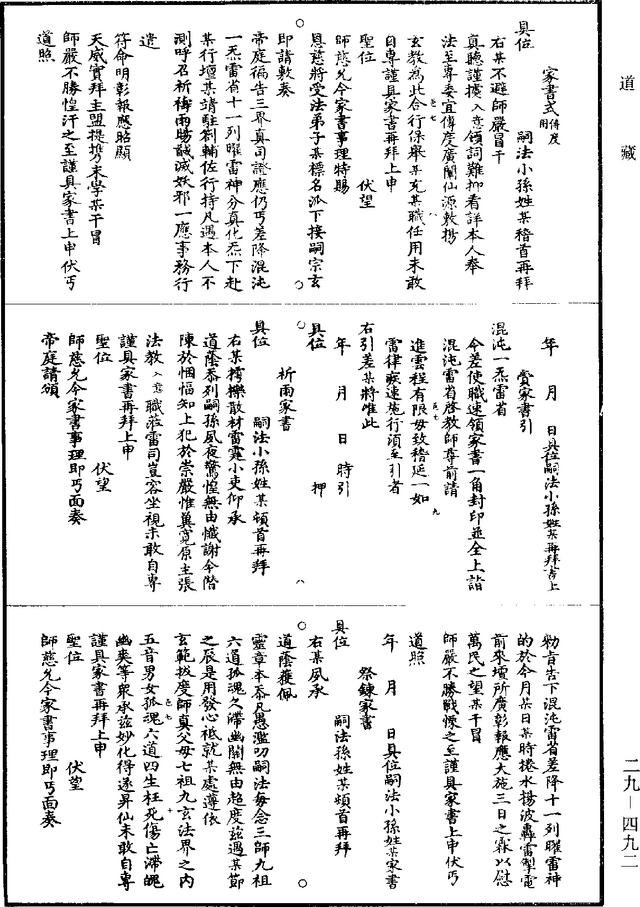 道藏
家書式 傳度用
具位 嗣法小孫姓某稽首再拜
右某不避師嚴冒干
真聽謹據 入意 領詞難抑看詳本人奉
法至專委宜傳度廣闡仙源敷揚
玄教為此合行保舉某充某職任用未敢
自專謹具家書再拜上申
聖位 伏望
師慈允今家書事理特賜
恩慈將受法弟子某標名派下接嗣宗玄
即請敷奏
帝庭徧告三界真司證應仍丐差降混沌
一炁雷省十一列曜雷神分真化炁下赴
某行壇某靖駐劄輔佐行持凡遇本人不
測呼召祈禱雨暘馘滅妖邪一應事務行
遣
符命明彰報應昭顯
天威實拜主盟提携末學某干冒
師嚴不勝惶汗之至謹具家書上申伏丐
道照
年 月 日具位嗣法小孫姓某再拜書上
賫家書引
混沌一炁雷省
今差使職速領家書一角封印並全上詣
混沌雷省啓教師尊前請
進雲程有限毋致稽延一如
雷律疾速施行須至引者
右引差某將惟此
年 月 日 時引
具位 押
祈雨家書
具位 嗣法小孫姓某頓首再拜
右某樗櫟散材雷霆小吏仰承
道蔭忝列嗣孫夙夜驚惶無由懺謝今階
陳於悃愊知上犯於崇嚴惟冀寬原主張
法教 入意 職蒞雷司豈容坐視未敢自專
謹具家書再拜上申
聖位 伏望
師慈允今家書事理即丐面奏
帝庭請頒
勑旨告下混沌雷省差降十一列曜雷神
的於今月某日某時捲水揚波轟雷掣電
前來壇所廣彰報應大施三日之霖以慰
萬民之望某干冒
師嚴不勝戰慄之至謹具家書上申伏丐
道照
年 月 日具位嗣法小孫姓某家書
祭鍊家書
具位 嗣法孫姓某頓首再拜
右某夙承
道蔭獲佩
靈章本忝凡愚濫叨嗣法每念三師九祖
六道孤魂久滯幽關無由超度茲遇某節
之辰是用發心祗就某處遵依
玄範拔度師真父母七祖九玄法界之內
五音男女孤魂六道四生枉死傷亡滯魄
幽爽等衆承茲妙化得遂昇仙未敢自專
謹具家書再拜上申
聖位 伏望
師慈允今家書事理即丐面奏
二九—四九二